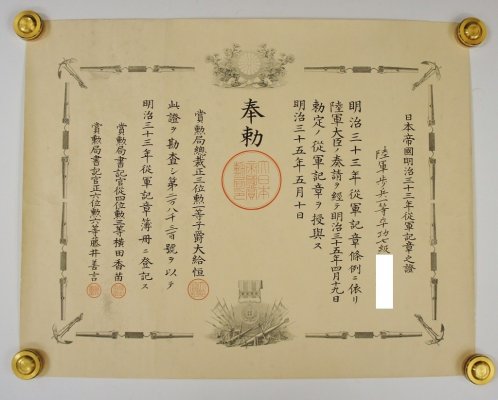 日本帝國明治三十三年従軍記章之證
陸軍歩兵一等卒功七級
明治三十三年従軍記章條例ニ依リ
陸軍大臣ノ奏請ヲ経テ明治三十五年四月十九日
勅定ノ従軍記章ヲ授與ス
明治三十五年五月十日
奉勅
賞勲局総裁正三位勲一等子爵大給恒
此證ヲ勘査シ第
號ヲ以テ
明治三十三年従軍記章簿冊ニ登記ス
賞勲局書記官従四位勲三等横田香苗
賞勲局書記官正六位勲六等藤井善言